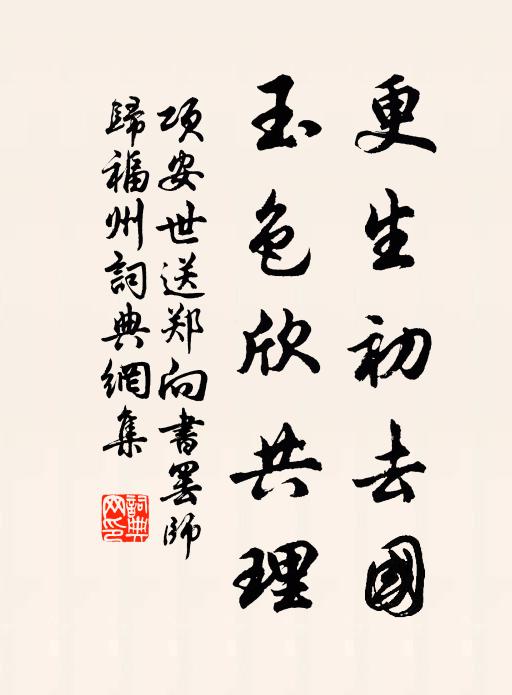 更生初去國
玉色欣共理
项安世送郑向書罢師
歸福州詞典網集
詞典
网印